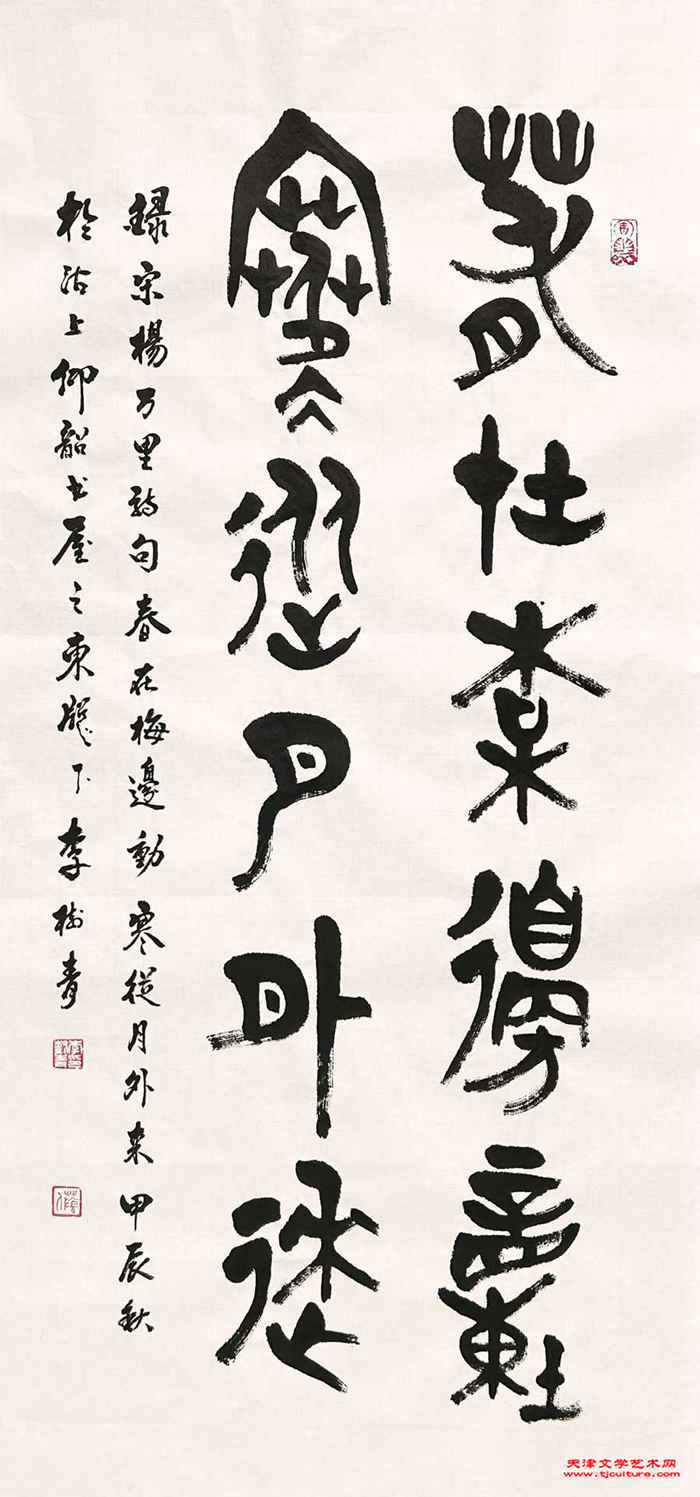 春在梅邊動
寒從月外來
録宋楊万里詩句春在梅邊動寒從月外来甲辰秋
於沽上仰韶书屋之東牕下李樹青
天津文学艺术网
www.tjculture.com